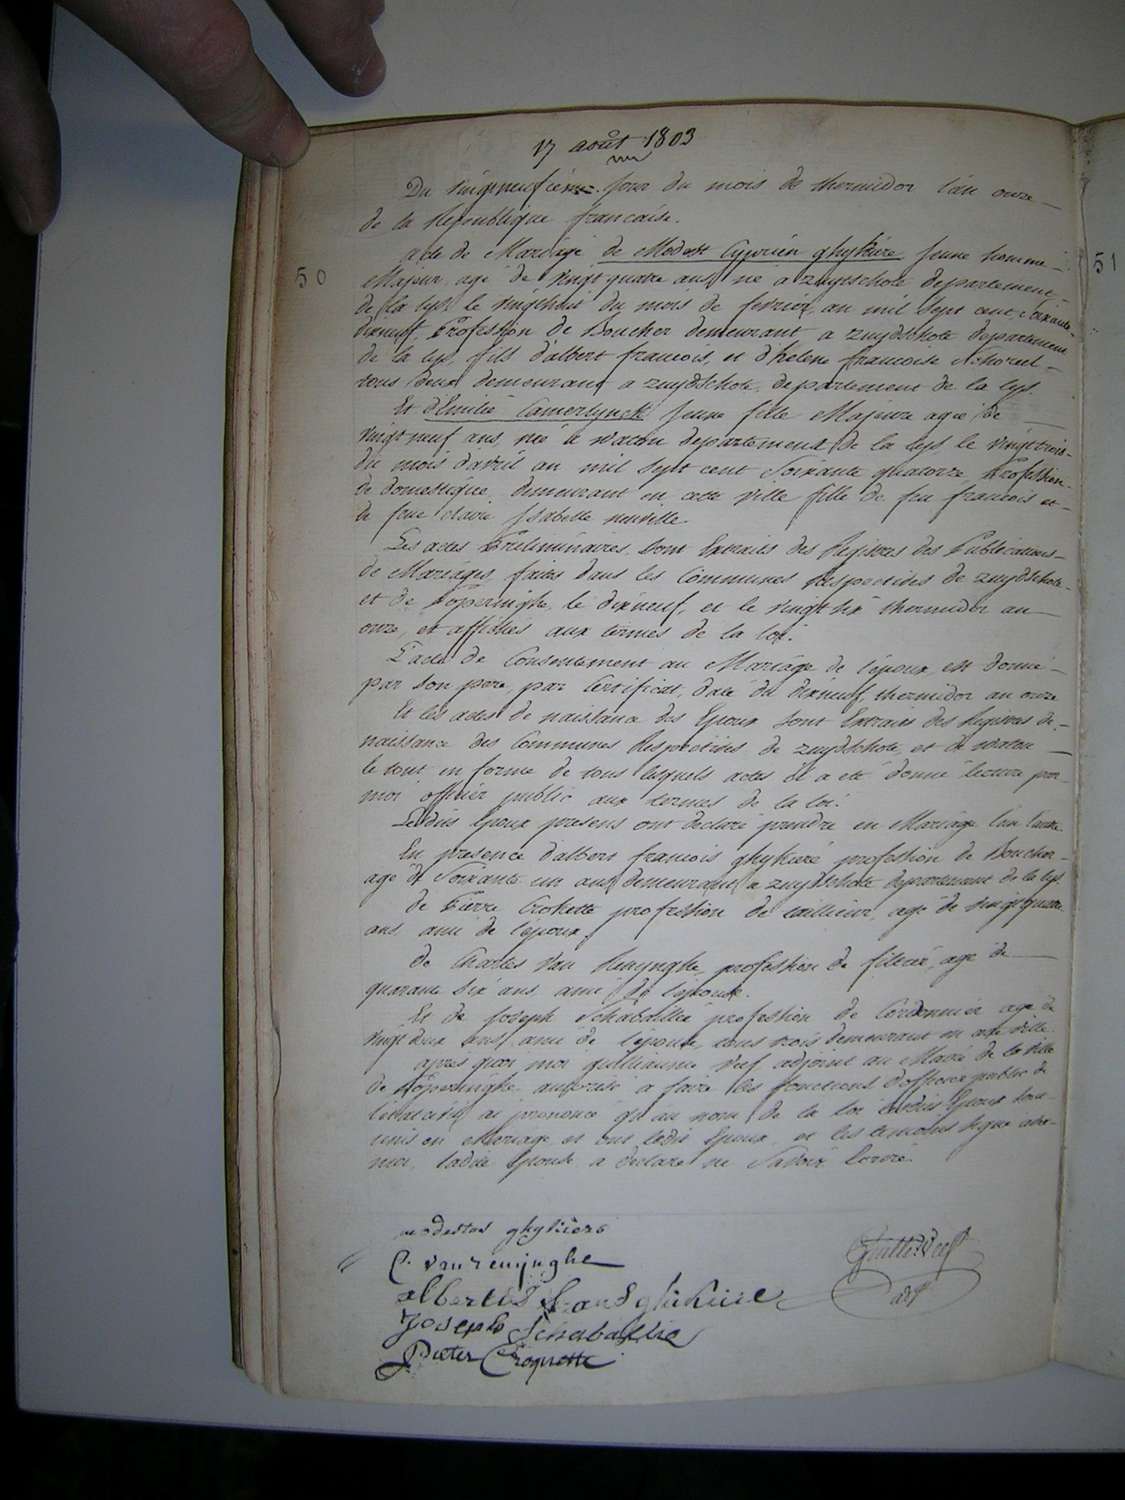 17 août 1803
Du vingtneufième Jour du mois de thermidor l'an onze
de la Republique francaise.
50
acte de Mariage de Modest Cyprien ghykiere Jeune homme
Majeur agé de vingt quatre ans né a Zuydschote departement
de la lys le vingthuit du mois de fevrier an mil sept cent soixante
dixneuf, Profession de Boucher demeurant a zuydschote departement
de la lys, fils d'albert francois, et d'helene francoise
tous deux demeurant a zuydschote, departement de la lys.
Et d'Emilie Camerlynck Jeune fille Majeure agée de
vingtneuf ans, née à watou departement de la lys le vingttrois
du mois d'avril an mil sept cent soixante quatorze Profession
de domestique, demeurant en cette ville fille de feu francois et
de feue claire Isabelle neuville.
Les actes Preliminaires sont Extraits des Registres des Publications
de Mariages, faites dans les Communes Respectives de zuydschote
et de Poperinghe, le dixneuf, et le vingt six thermidor an
onze, et affichés aux termes de la loi.
L'acte de Consentement au Mariage de l'epoux, est donné
par son pere, par Certificat, daté du dixneuf thermidor an onze
Et les actes de naissance des Epoux sont Extraits des Registres de
naissance des Communes Respectives de zuydschote, et de watou
le tout en forme de tous lesquels actes il a eté donné lecture par
moi officier public aux termes de la loi.
Lesdits Epoux presens ont declaré prendre en Mariage l'un l'autre
En presence d'albert francois ghykiere profession de Boucher
agé de Soixante un ans, demeurant a zuydschote departement de la lys.
de Pierre Crokette profession de tailleur, agé de vingtquatre
ans, ami de l'epoux,
de Charles Van Renynghe profession de filerér, agé de
quarante six ans ami de l'epouse.
Et de Joseph Schabaillie profession de Cordonnier agé de
vingt deux ans, ami de l'epouse, tous trois demeurant en cette ville
après quoi moi guilliaume Veef adjoint au Maire de la ville
de Poperinghe, autorisé a faire les fonctions d'officier public de
l'etat civil ai prononcé qu'au nom de la loi lesdits Epoux sont
unis en Mariage, et ont ledit Epoux, et les temoins signé avec
moi, ladite Epouse a declaré ne savoir Ecrire.
modestus ghykiere
C. van renijnghe
albertus frans ghikiere
Joseph Schabaillie
Pieter Croquette
Guill: Veef
adj
51